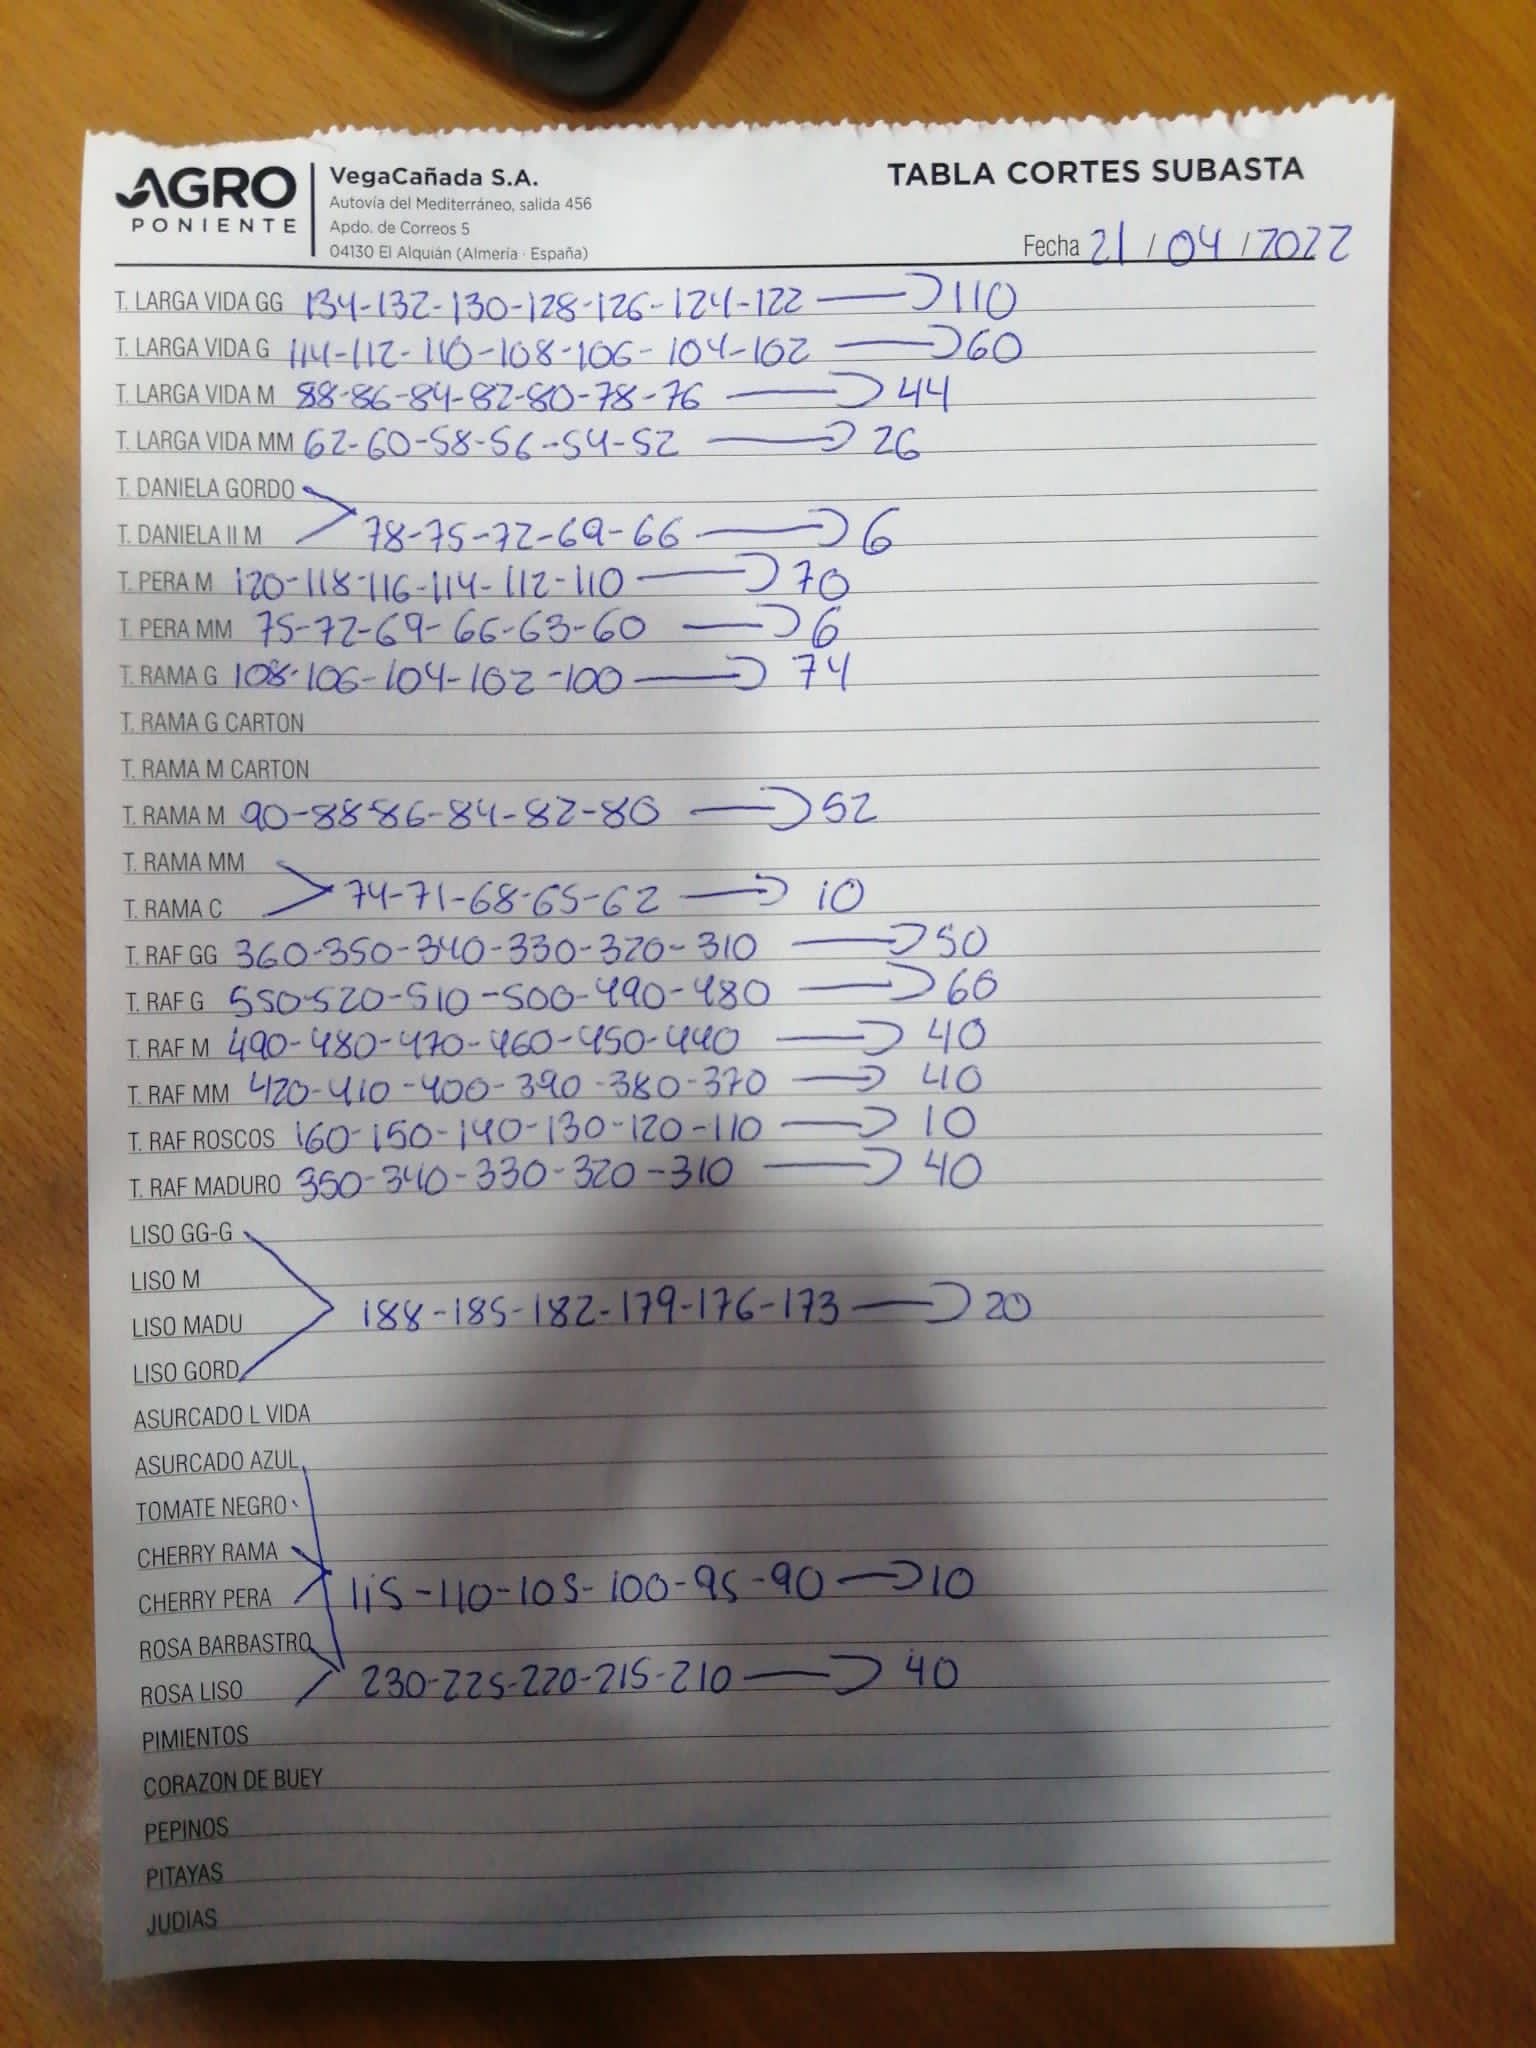 AGRO
PONIENTE
VegaCañada S.A.
Autovía del Mediterráneo, salida 456
Apdo. de Correos 5
04130 El Alquián (Almería · España)
TABLA CORTES SUBASTA
Fecha 21/04/2022
T. LARGA VIDA GG 134-132-130-128-126-124-122 110
T. LARGA VIDA G 114-112-110-108-106-104-102 60
T. LARGA VIDA M 88-86-84-82-80-78-76 44
T. LARGA VIDA MM 62-60-58-56-54-52 26
T. DANIELA GORDO
T. DANIELA II M 78-75-72-69-66 6
T. PERA M 120-118-116-114-112-110 70
T. PERA MM 75-72-69-66-63-60 6
T. RAMA G 108-106-104-102-100 74
T. RAMA G CARTON
T. RAMA M CARTON
T. RAMA M 90-88-86-84-82-80 52
T. RAMA MM
T. RAMA C 74-71-68-65-62 10
T. RAF GG 360-350-340-330-320-310 50
T. RAF G 550-520-510-500-490-480 60
T. RAF M 490-480-470-460-450-440 40
T. RAF MM 420-410-400-390-380-370 40
T. RAF ROSCOS 160-150-140-130-120-110 10
T. RAF MADURO 350-340-330-320-310 40
LISO GG-G
LISO M
LISO MADU 188-185-182-179-176-173 20
LISO GORD
ASURCADO L VIDA
ASURCADO AZUL
TOMATE NEGRO
CHERRY RAMA
CHERRY PERA 115-110-105-100-95-90 10
ROSA BARBASTRO
ROSA LISO 230-225-220-215-210 40
PIMIENTOS
CORAZON DE BUEY
PEPINOS
PITAYAS
JUDIAS